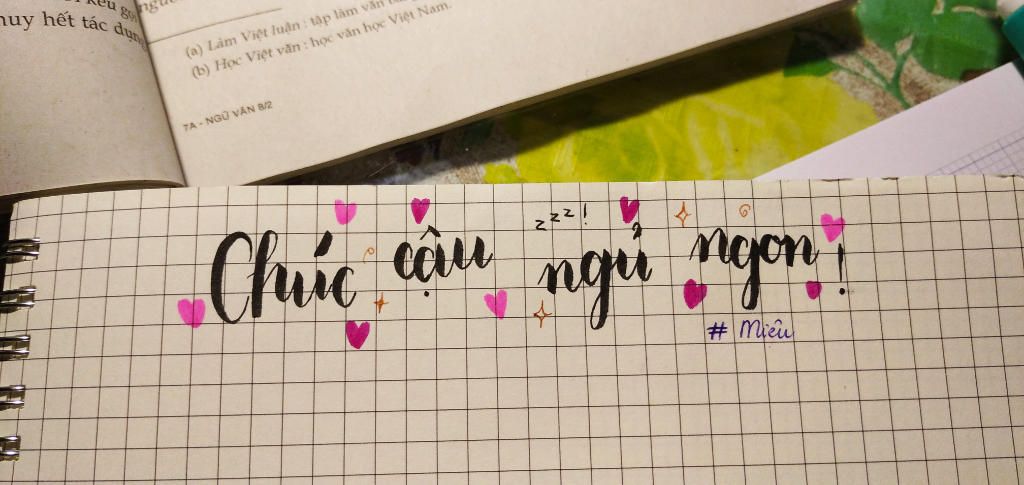 huy hết tác dụng
(a) Làm Việt luận : tập làm văn
(b) Học Việt văn : học văn học Việt Nam.
7A - NGỮ VĂN 8/2
zzz!
Chúc cậu ngủ ngon!
# Miêu